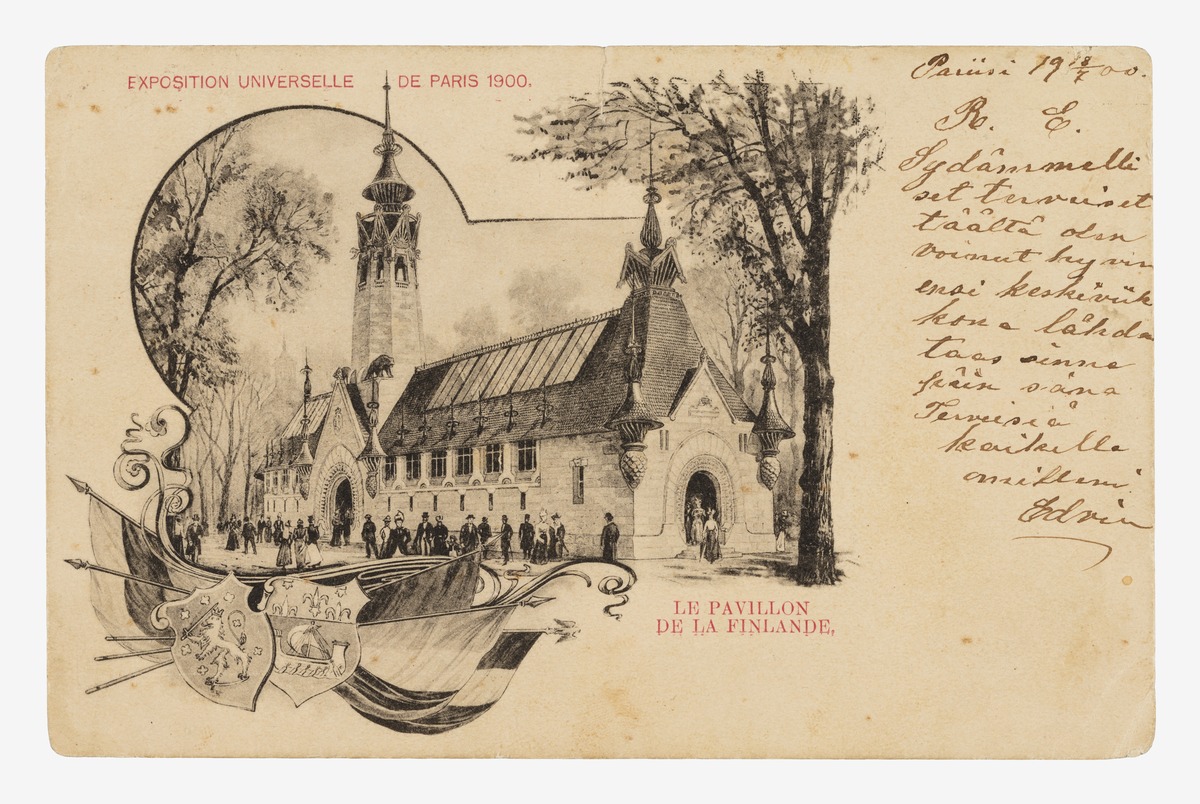 EXPOSITION UNIVERSELLE DE PARIS 1900.
LE PAVILLON
DE LA FINLANDE,
Pariisi 19 00.
R. E.
Sydämmelli
set terveiset
täältä olen
voinut hyvin
ensi keskiviik
kona lähden
taas sinne
päin sano
Terveisiä
kaikille
omilleni
Edvin